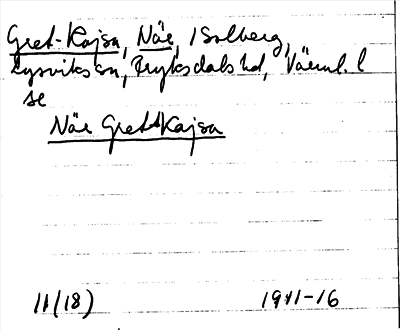 Gret-Kajsa, Näre, 1 Solberg,
Lysviks sn, Fryksdals hd, Värml. l
se
Näre Gret-Kajsa
11(18) 1911-16